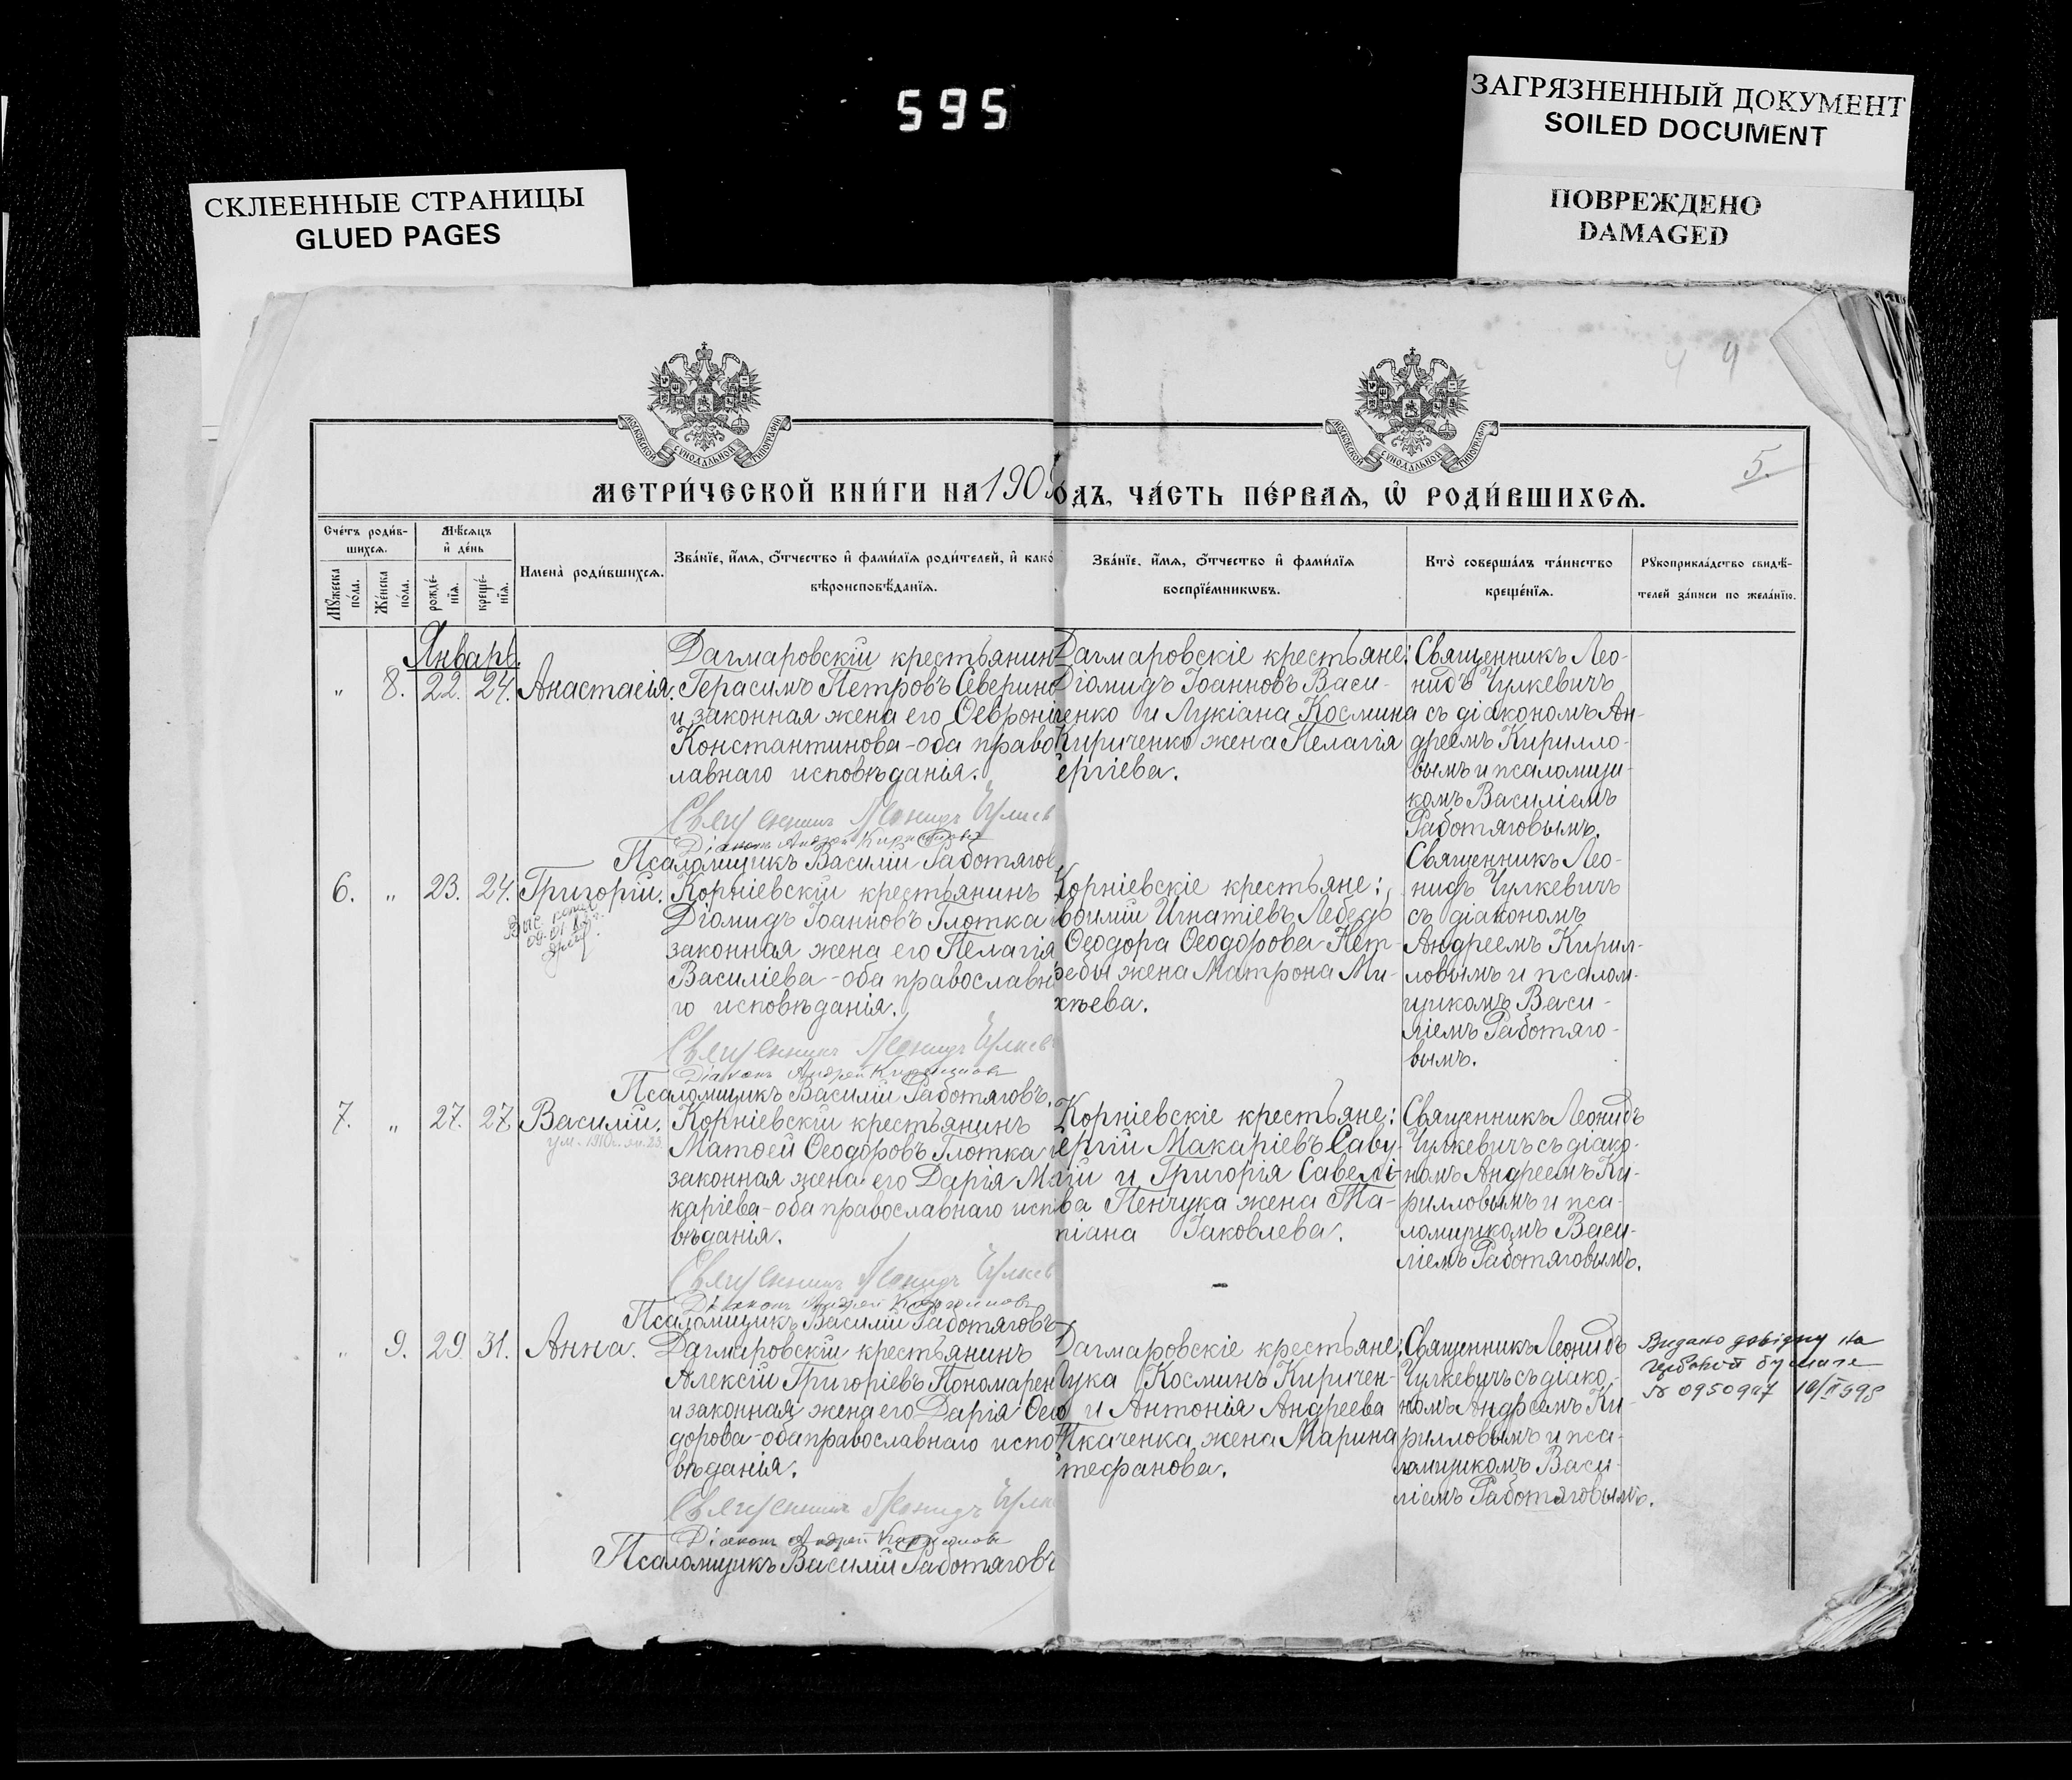 595
ЗАГРЯЗНЕННЫЙ ДОКУМЕНТ
SOILED DOCUMENT
ПОВРЕЖДЕНО
DAMAGED
СКЛЕЕННЫЕ СТРАНИЦЫ
GLUED PAGES
4 4
5.
МОСКОВСКОЙ СѴНОДАЛЬНОЙ ТИПОГРАФІИ
МОСКОВСКОЙ СѴНОДАЛЬНОЙ ТИПОГРАФІИ
МЕТРИ́ЧЕСКОЙ КНИ́ГИ НА 190
ОДЪ, ЧА́СТЬ ПЕ́РВАѦ, Ѡ҆ РОДИ́ВШИХСѦ.
Сче́тъ роди́в-
шихсѧ.
Мꙋ́жеска
по́ла.
Же́нска
по́ла.
Мѣ́сѧцъ
и҆ де́нь
рожде́-
нїѧ.
креще́-
нїѧ.
Имена̀ роди́вшихсѧ.
Зва́нїе, и҆́мѧ, ѻ҆́тчество и҆ фами́лїѧ роди́телей, и҆ како́
вѣроисповѣ́данїѧ.
Зва́нїе, и҆́мѧ, ѻ҆́тчество и҆ фами́лїѧ
воспрїе́мникѡвъ.
Кто̀ соверша́лъ та́инство
креще́нїѧ.
Рꙋкоприкла́дство свидѣ́-
телей за́писи по жела́нїю.
Январь.
„ 8. 22. 24. Анастасія.
Дагмаровскій крестьянин
Герасимъ Петровъ Северино
и законная жена его Ѳевроні
Константинова - оба право
лавнаго исповѣданія.
Священникъ Леонидъ Чулкев
Діаконъ Андрей Кирилловъ
Псаломщикъ Василій Работягов
Дагмаровскіе крестьяне:
Діомидъ Іоанновъ Васи-
ченко и Лукіана Космина
Кириченко жена Пелагія
ергіева.
Священникъ Лео-
нидъ Чулкевичъ
съ діакономъ Ан-
дреемъ Кирилло-
вымъ и псаломщи-
комъ Василіемъ
Работяговымъ.
6. „ 23. 24. Григорій.
Корніевскій крестьянинъ
Діомидъ Іоанновъ Глотка
законная жена его Пелагія
Василіева - оба православн
го исповѣданія.
Священникъ Леонидъ Чулкев
Діаконъ Андрей Кирилловъ
Псаломщикъ Василій Работяговъ.
Корніевскіе крестьяне:
Игнатіевъ Лебедь
Ѳеодора Ѳеодорова Нет-
ребы жена Матрона Ми-
хѣева.
Священникъ Лео-
нидъ Чулкевичъ
съ діакономъ
Андреемъ Кирил-
ловымъ и псалом-
щикомъ Васи-
ліемъ Работяго-
вымъ.
7. „ 27. 27. Василій.
ум. 1910 г. 23
Корніевскій крестьянинъ
Матѳей Ѳеодоровъ Глотка
законная жена его Дарія Ма
каріева - оба православнаго исп
вѣданія.
Священникъ Леонидъ Чулкев
Діаконъ Андрей Кирилловъ
Псаломщикъ Василій Работяговъ
Корніевскіе крестьяне:
ергій Макаріевъ Саву-
и Григорія Савелі-
ва Пенчука жена Та-
піана Іаковлева.
Священникъ Леонидъ
Чулкевичъ съ діако-
номъ Андреемъ Ки-
рилловымъ и пса-
ломщикомъ Васи-
ліемъ Работяговымъ.
„ 9. 29. 31. Анна.
Дагмаровскій крестьянинъ
Алексій Григоріевъ Пономарен
и законная жена его Дарія Ѳео
дорова - оба православнаго испо
вѣданія.
Священникъ Леонидъ Чулк
Діаконъ Андрей Кирилловъ
Псаломщикъ Василій Работяговъ
Дагмаровскіе крестьяне:
Лука Косминъ Киричен-
и Антонія Андреева
Ткаченка жена Марина
тефанова.
Священникъ Леонидъ
Чулкевичъ съ діако-
номъ Андреемъ Ки-
рилловымъ и пса-
ломщикомъ Васи-
ліемъ Работяговымъ.
Видано довідку на
гербовой бумаге
№ 0950947